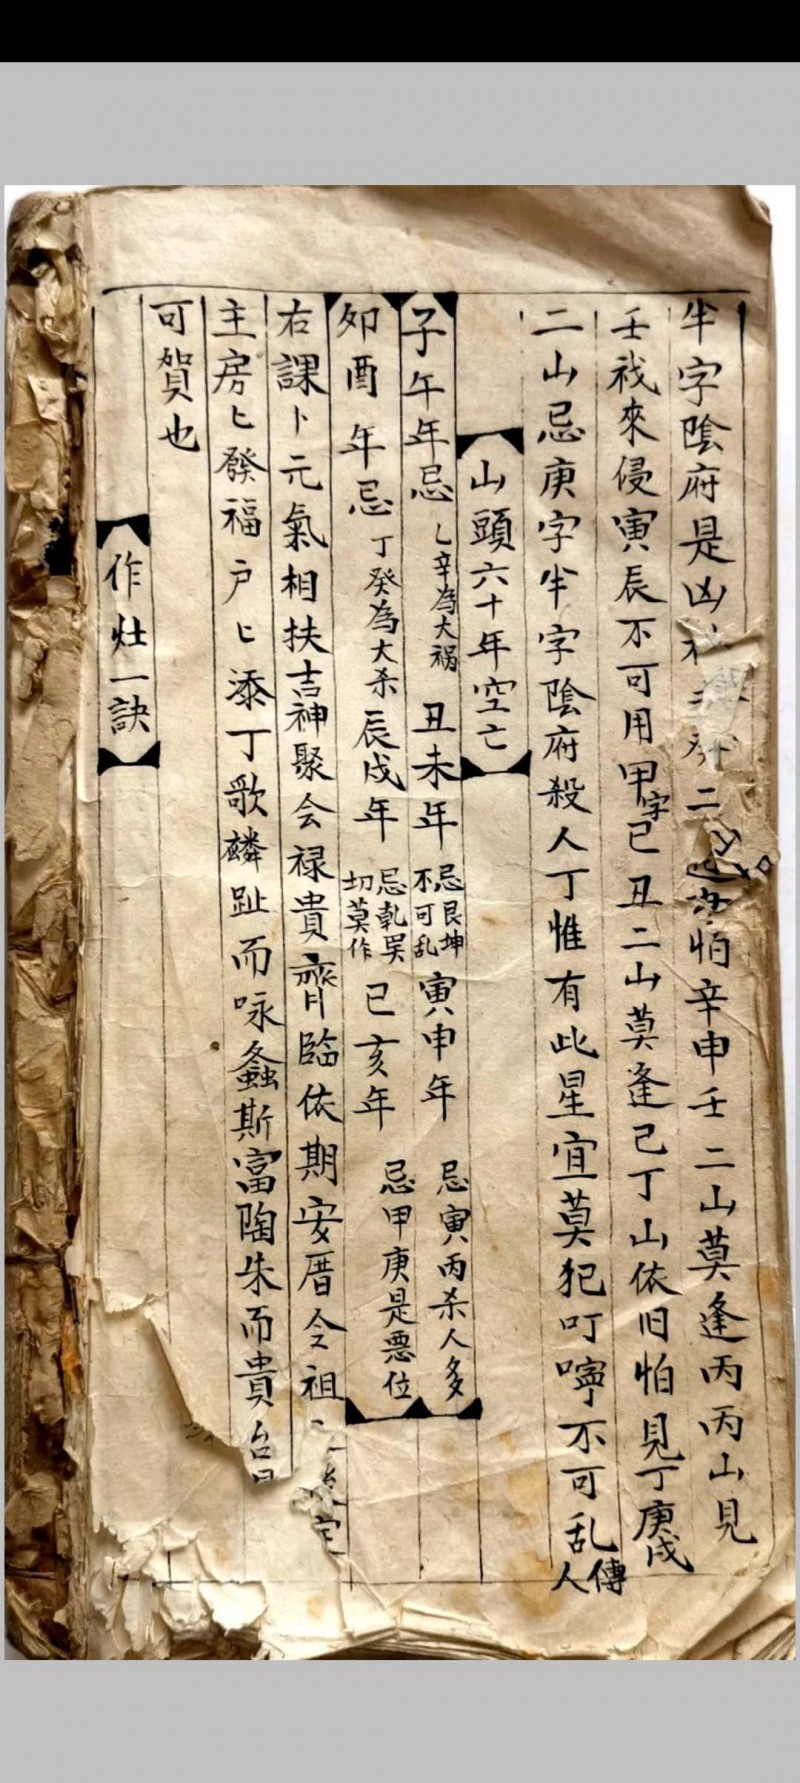 半字陰府是凶 二 怕辛申壬二山莫逢丙丙山見
壬戏來侵寅辰不可用甲字己丑二山莫逢己丁山依旧怕見丁庚戌
二山忌庚字半字陰府殺人丁惟有此星宜莫犯叮嚀不可乱傳人
山頭六十年空亡
子午年忌乙辛為大禍丑未年忌艮坤不可乱寅申年忌寅丙杀人多
卯酉年忌丁癸為大杀辰戌年忌乾巽切莫作巳亥年忌甲庚是恶位
右課卜元氣相扶吉神聚会禄貴齊臨依期安厝令祖
主房匕發福户匕添丁歌麟趾而咏螽斯富陶朱而貴
可賀也
作灶一訣